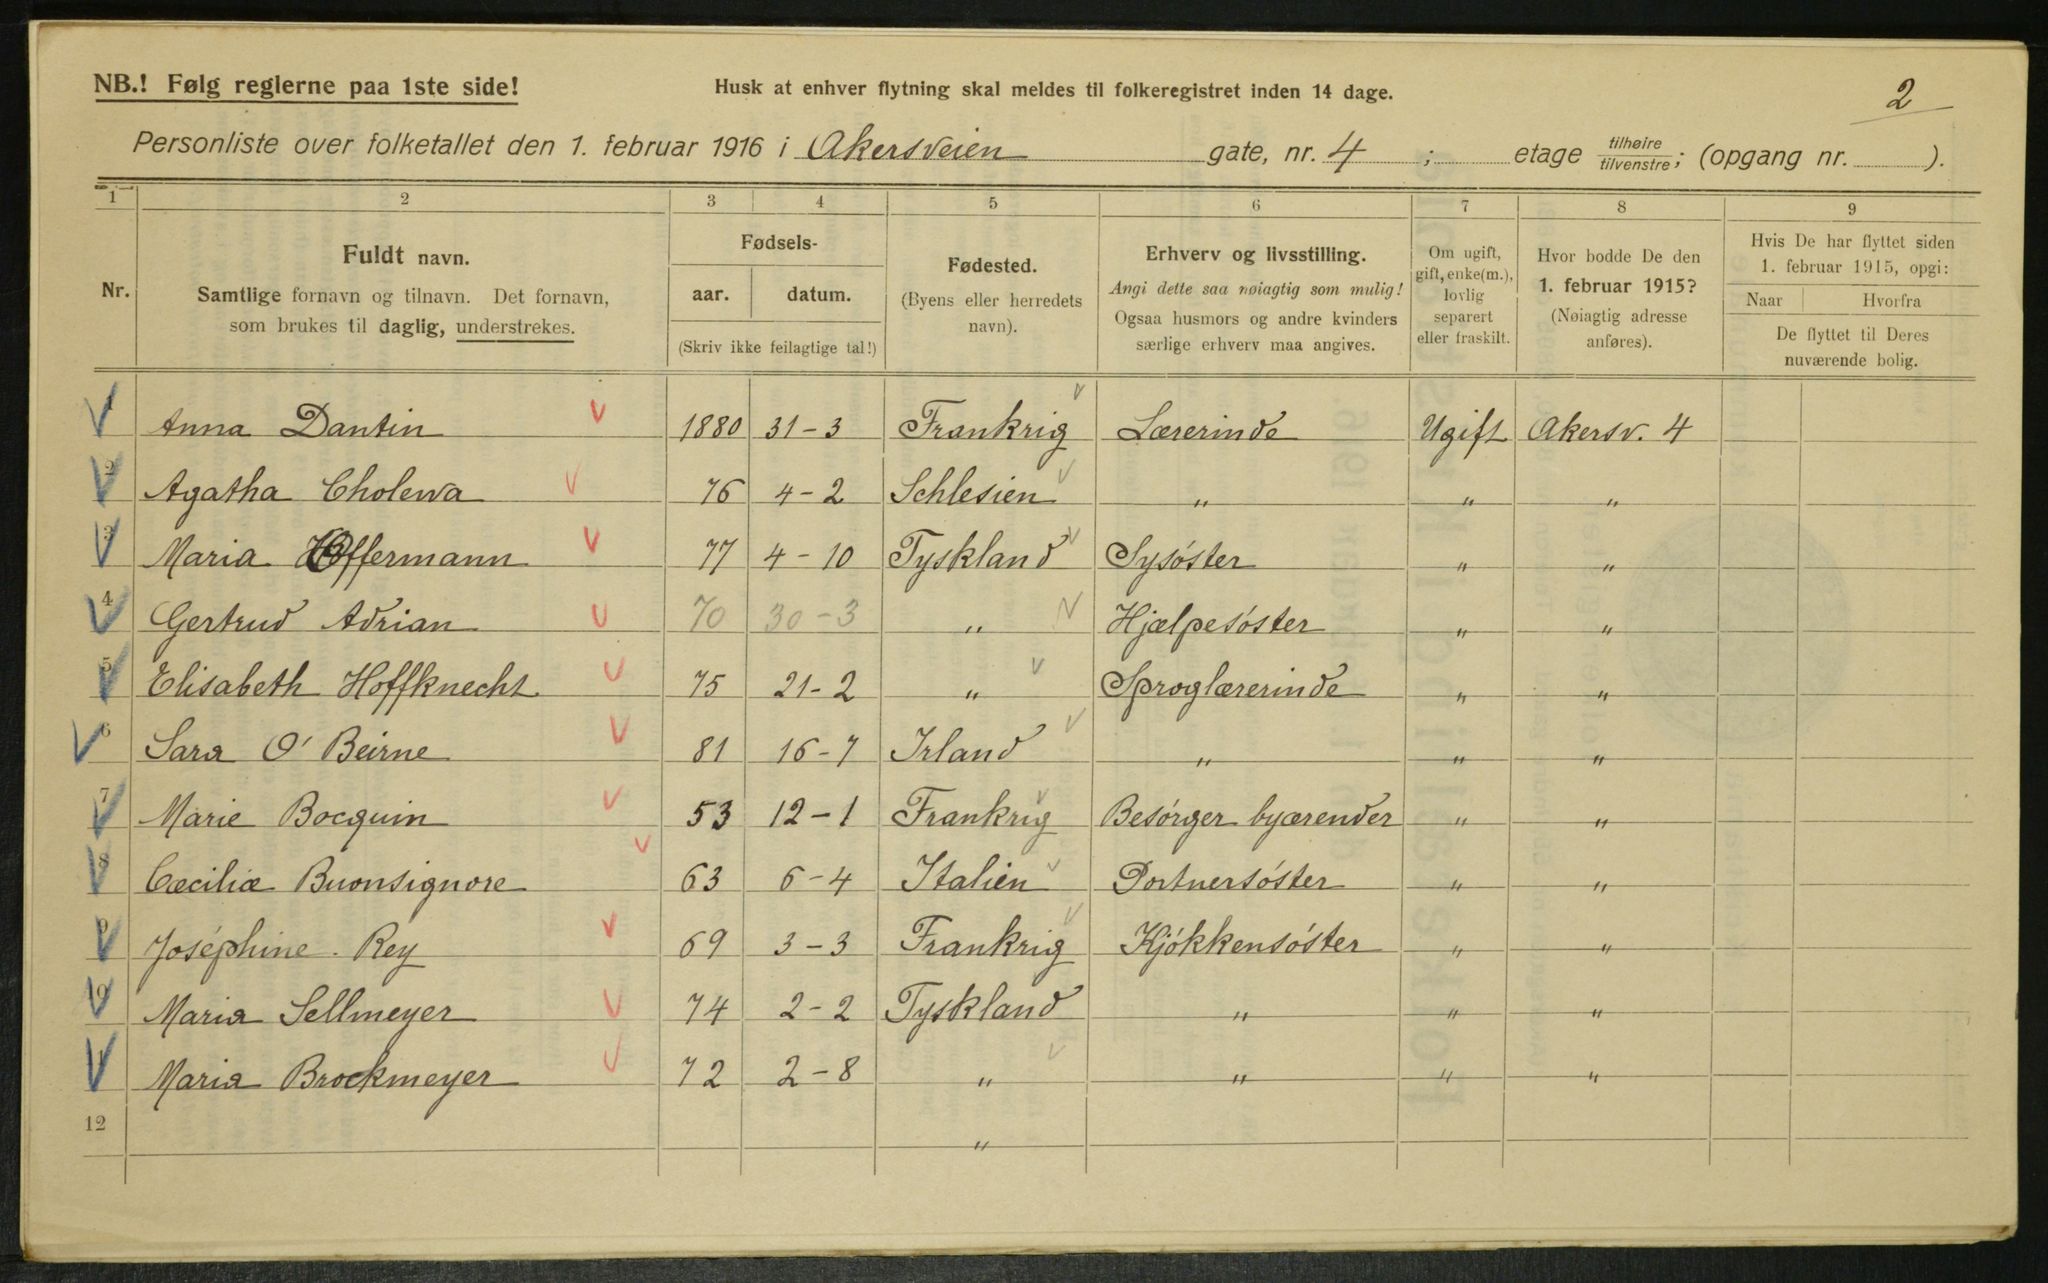 NB.! Følg reglerne paa 1ste side!
Husk at enhver flytning skal meldes til folkeregistret inden 14 dage.
2
Personliste over folketallet den 1. februar 1916 i Akersveien gate, nr. 4 ; etage tilhøire tilvenstre; (opgang nr. ).
1 2 3 4 5 6 7 8 9
Nr.
Fuldt navn.
Samtlige fornavn og tilnavn. Det fornavn,
som brukes til daglig, understrekes.
Fødsels-
aar. datum.
(Skriv ikke feilagtige tal!)
Fødested.
(Byens eller herredets
navn).
Erhverv og livsstilling.
Angi dette saa nøiagtig som mulig!
Ogsaa husmors og andre kvinders
særlige erhverv maa angives.
Om ugift,
gift, enke(m.),
lovlig
separert
eller fraskilt.
Hvor bodde De den
1. februar 1915?
(Nøiagtig adresse
anføres).
Hvis De har flyttet siden
1. februar 1915, opgi:
Naar Hvorfra
De flyttet til Deres
nuværende bolig.
1 Anna Dantin 1880 31-3 Frankrig Lærerinde Ugift Akersv. 4
2 Agatha Cholewa 76 4-2 Schlesien " " "
3 Maria Hoffermann 77 4-10 Tyskland Sysøster " "
4 Gertrud Adrian 70 30-3 " Hjælpesøster " "
5 Elisabeth Hoffknecht 75 21-2 " Sproglærerinde " "
6 Sara O'Beirne 81 16-7 Irland " " "
7 Marie Bocquin 53 12-1 Frankrig Besørger byærender " "
8 Cæciliæ Buonsignore 63 6-4 Italien Portnersøster " "
9 Joséphine Rey 69 3-3 Frankrig Kjøkkensøster " "
10 Maria Sellmeyer 74 2-2 Tyskland " " "
11 Maria Brockmeyer 72 2-8 " " " "
12 "